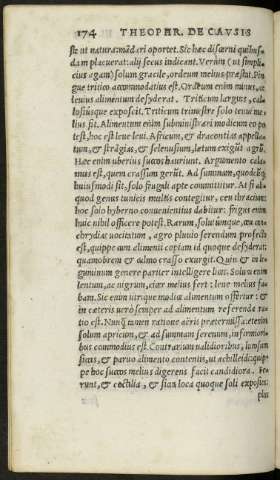 174 THEOPHR. DE CAVSIS
sic ut naturæ mõd eri oportet. Sic hæc discerni quibusdam placuerat: alij secus indicant. Verum (ut simplicius agam) solum gracile, ordeum melius
tritico accommodatius est. Ordeum enim minus, ac
leuius alimentum desyderat. Triticum largius,
exposcit. Triticum trimestre solo tenui melius sit. Alimentum enim subministrari modicum potest, hoc est leue leui. Africum, & dracontias
& strãgias, & selenusium, lætum exigũt agrũ.
Hæc enim uberius succos hauriunt. Argumento calamus est, quem crassum gerũt. Ad summam, quodcũq;
huiusmodi sit, solo frugili apte committitur. At si aliquod genus tunicis multis contegitur, ceu thracium:
hoc solo hyberno conuenientius dabitur: frigus enim
huic nihil officere potest. Rarum, solutumque,
uocitatum, agro pluuio serendum profecto
est, quippe cum alimenti copiam id quoque desyderat:
quamobrem & calmo crasso exurgit. Quin & in leguminum genere pariter intelligere licet. Solum enim
lentum, ac nigrum, ciær melius fert: leue melius fabam. Sic enim utrique modiæ alimentum offertur: &
in cæteris uerò semper ad alimentum referenda ratio est. Nunq̃ tamen ratione aëris prætermissa: etenim
solum apricum, & ad summam serenum, infirmioribus commodius est. Contrarium ualidioribus,
siccus, & paruo alimento contentis, ut achilleidi: quippe hoc succos melius digerens facit candidiora.
& coctilia, & sian loca quoque soli exposita:
plus